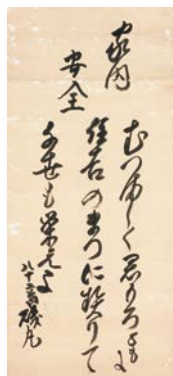 家内
安全
むつましく君もろともに
住吉のまつに契りて
千世も栄えよ
翁磯丸